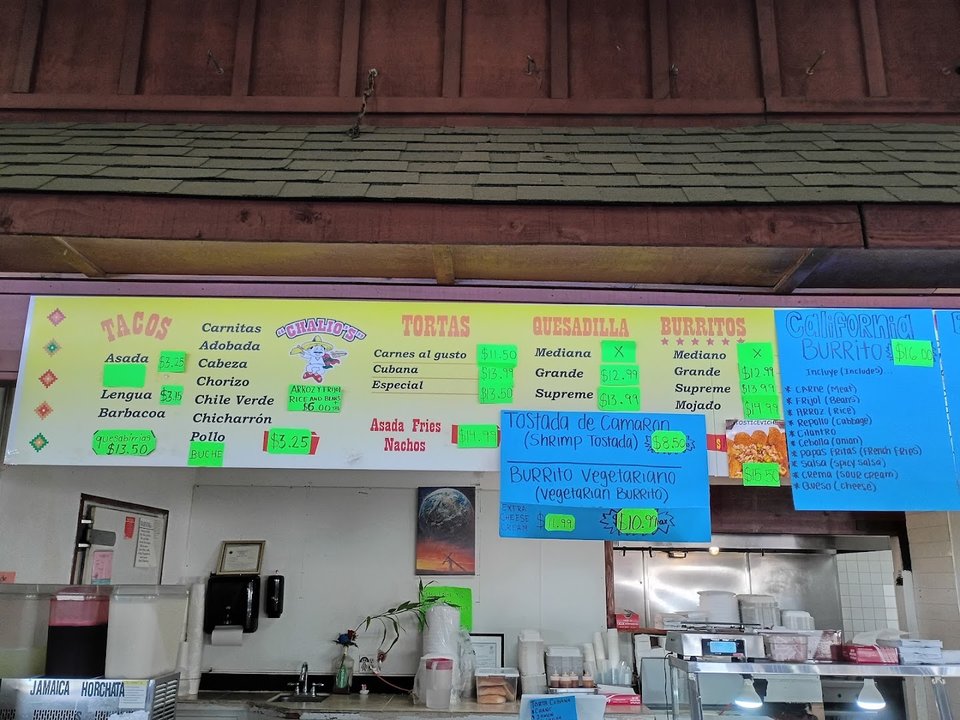 TACOS
Asada $3.25
Lengua $3.75
Barbacoa
quesabirrias
$13.50
Carnitas
Adobada
Cabeza
Chorizo
Chile Verde
Chicharrón
Pollo
BUCHE
$3.25
"CHALIO'S"
ARROZ Y FRIJOL
RICE AND BEANS
$6.00
TORTAS
Carnes al gusto $11.50
Cubana $13.99
Especial $13.50
Asada Fries
Nachos
$14.99
QUESADILLA
Mediana X
Grande $12.99
Supreme $13.99
BURRITOS
Mediano X
Grande $12.99
Supreme $13.99
Mojado $14.99
TOSTICEVICHE
$15.50
Tostada de Camaron
(Shrimp Tostada) $8.50
Burrito Vegetariano
(Vegetarian Burrito)
EXTRA
CHEESE
CREAM
$1.99
$10.99
California
Burrito $16.00
Incluye (Includes)...
* Carne (Meat)
* Frijol (Beans)
* Arroz (Rice)
* Repollo (Cabbage)
* Cilantro
* Cebolla (Onion)
* Papas Fritas (French Fries)
* Salsa (Spicy Salsa)
* Crema (Sour Cream)
* Queso (Cheese)
JAMAICA HORCHATA
TORTA CUBANA